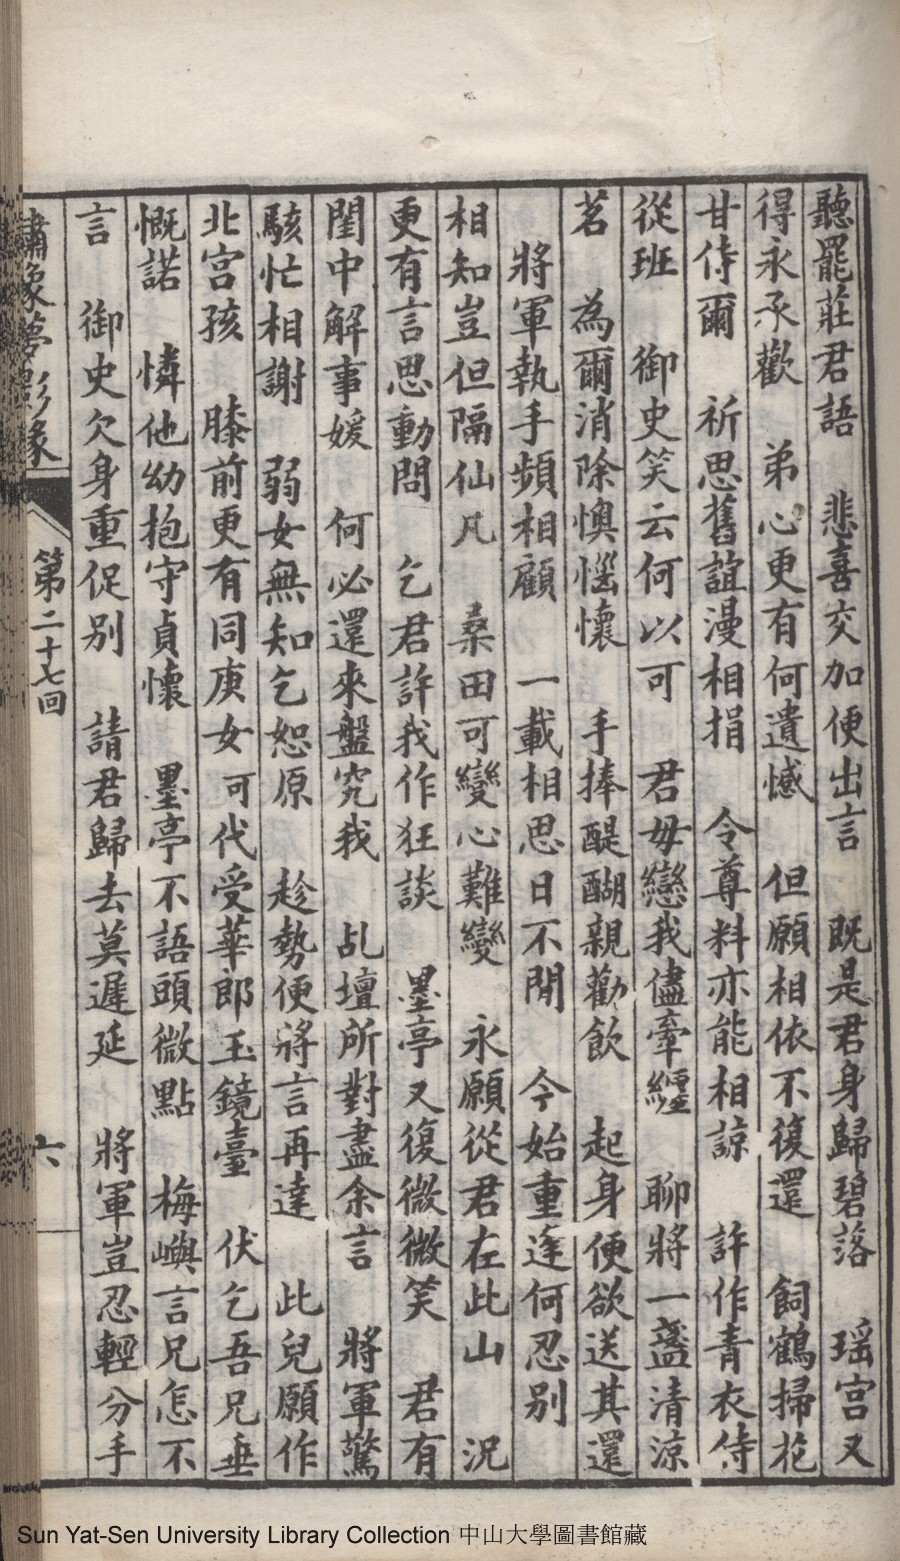 聽罷莊君語　悲喜交加便出言　既是君身歸碧落　瑶宫又
得永承歡　弟心更有何遺憾　但願相依不復還　飼鶴掃花
甘侍爾　祈思舊誼漫相捐　令尊料亦能相諒　許作青衣侍
從班　御史笑云何以可　君毋戀我儘牽纏　聊將一盞清涼
茗　為爾消除懊惱懷　手捧醍醐親勸飲　起身便欲送其還
將軍執手頻相顧　一載相思日不閒　今始重逢何忍别
相知豈但隔仙凡　桑田可變心難變　永願從君在此山　況
更有言思動問　乞君許我作狂談　墨亭又復微微笑　君有
閨中解事媛　何必還來盤究我　乩壇所對盡余言　將軍驚
駭忙相謝　弱女無知乞恕原　趁勢便將言再達　此兒願作
北宫孩　膝前更有同庚女　可代受華郎玉鏡臺　伏乞吾兄垂
慨諾　憐他幼抱守貞懷　墨亭不語頭微點　梅嶼言兄怎不
言　御史欠身重促别　請君歸去莫遲延　將軍豈忍輕分手
繡像夢影緣
第二十七回
六
Sun Yat-Sen University Library Collection 中山大學圖書館藏